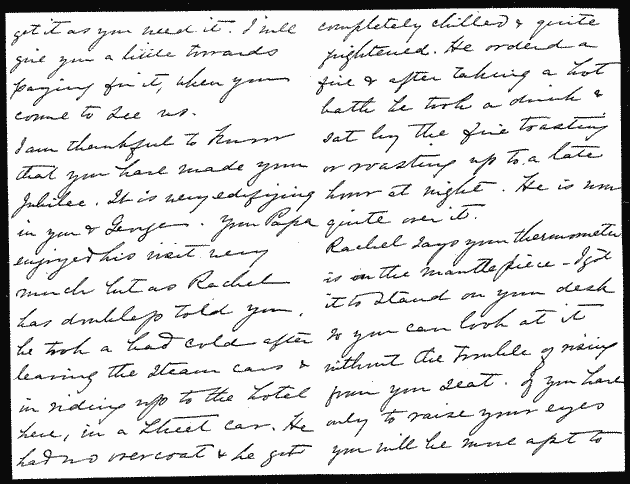 get it as you need it. I will
give you a little towards
paying for it, when you
come to see us.
I am thankful to know
that you have made your
Jubilee. It is very edifying
in you & George. Your Papa
enjoyed his visit very
much but as Rachel
has doubless told you,
he took a bad cold after
leaving the steam cars &
in riding up to the hotel
here, in a street car. He
had no overcoat & he got
completely chilled & quite
frightened. He ordered a
fire & after taking a hot
bath he took a drink &
sat by the fire toasting
or roasting up to a late
hour at night. He is now
quite over it.
Rachel says your thermometer
is on the mantlepiece - I got
it to stand on your desk
so you can look at it
without the trouble of rising
from your seat. If you have
only to raise your eyes
you will be more apt to